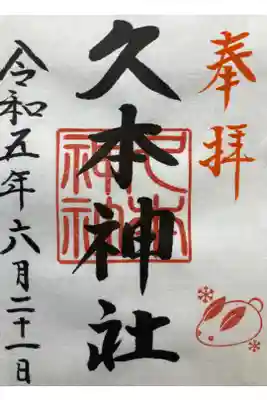 奉拝
久本神社
久本神社
令和五年六月二十一日